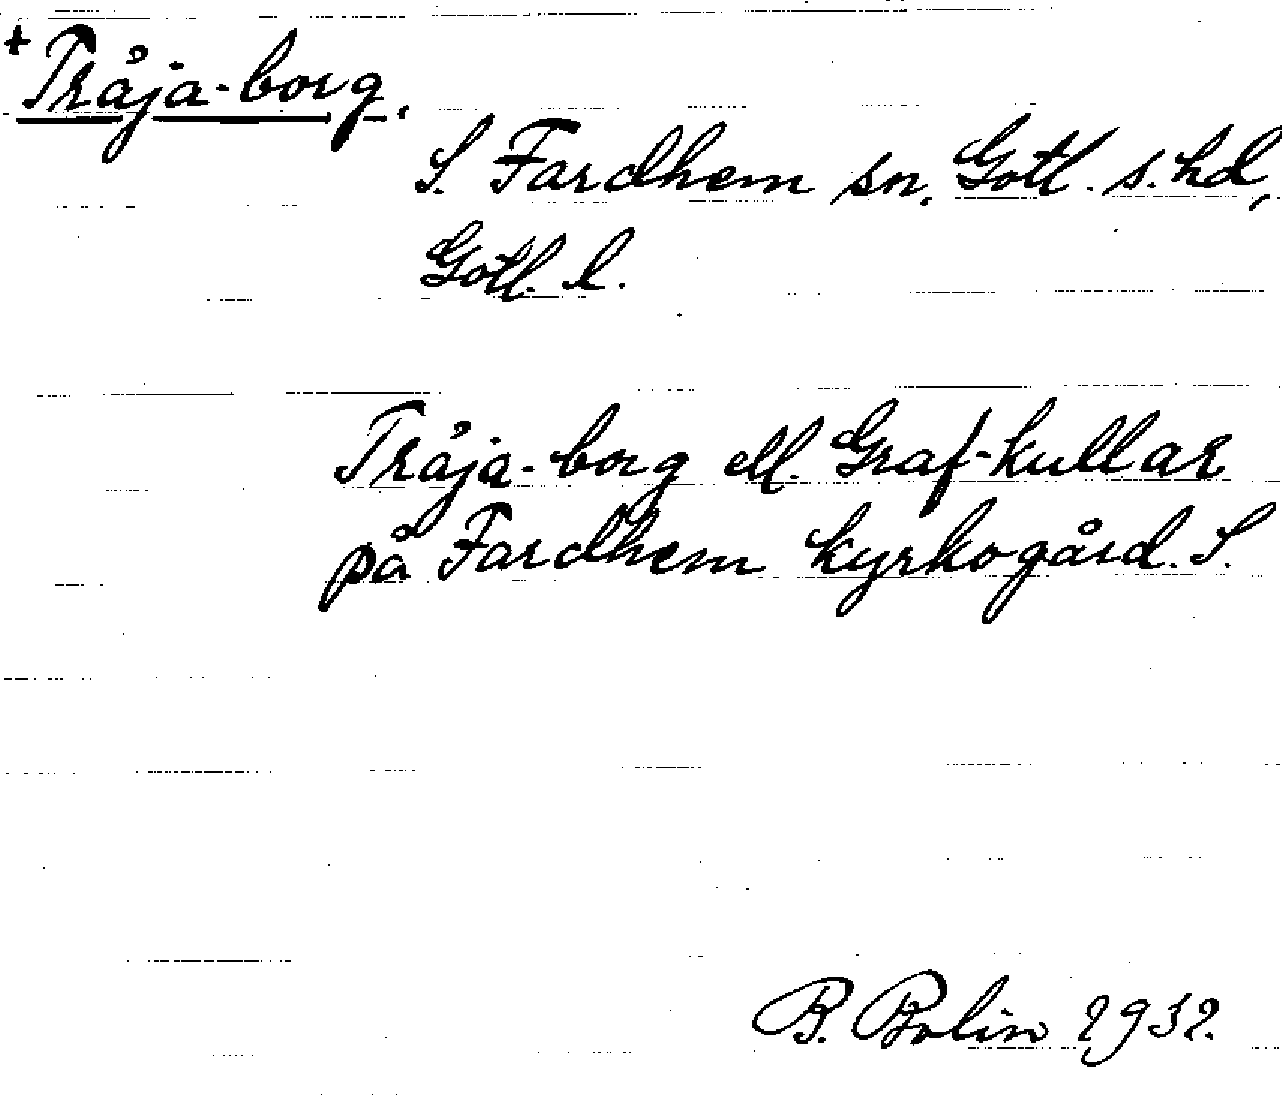 + Tråja-borg.
S. Fardhem sn, Gotl. s. hd,
Gotl. l.
Tråja-borg ell. Graf-kullar
på Fardhem kyrkogård. S.
B. Bolin 1932.